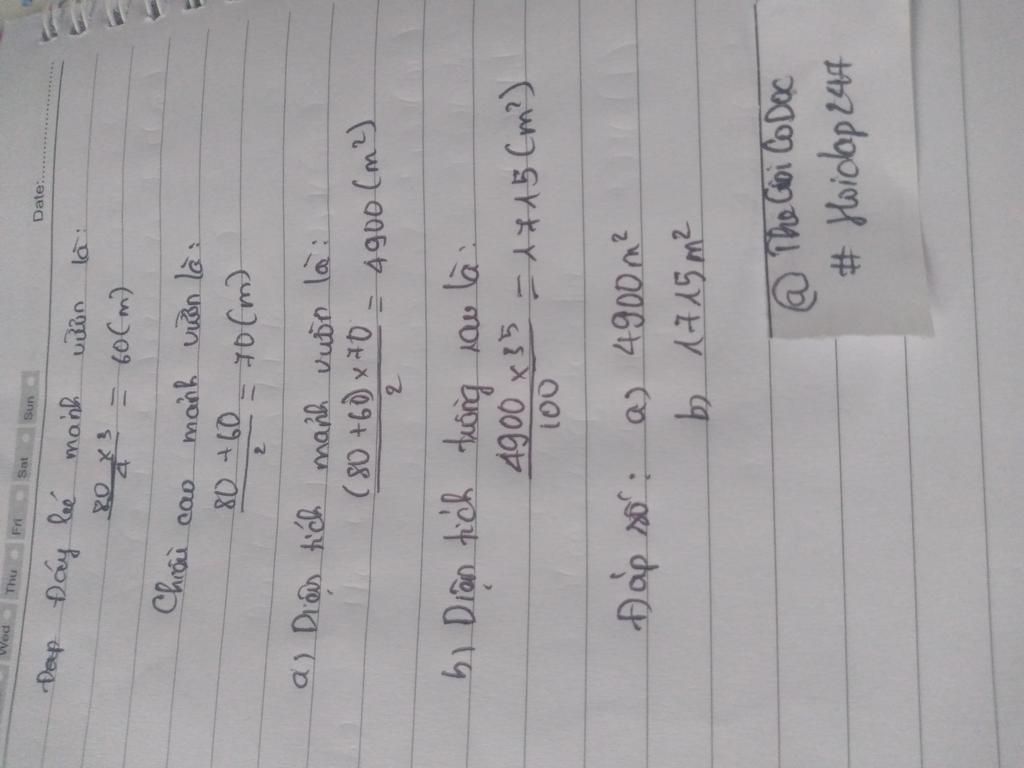 Date:
Wed Thu Fri Sat Sun
Đáy bé mảnh vườn là:
80 × 3 / 4 = 60(m)
Chiều cao mảnh vườn là:
80 + 60 / 2 = 70(m)
a) Diện tích mảnh vườn là:
(80 + 60) × 70 / 2 = 4900 (m²)
b) Diện tích trồng rau là:
4900 × 35 / 100 = 1715 (m²)
Đáp số: a) 4900m²
b) 1715m²
@TheGioiCoDoc
# Hoidap247